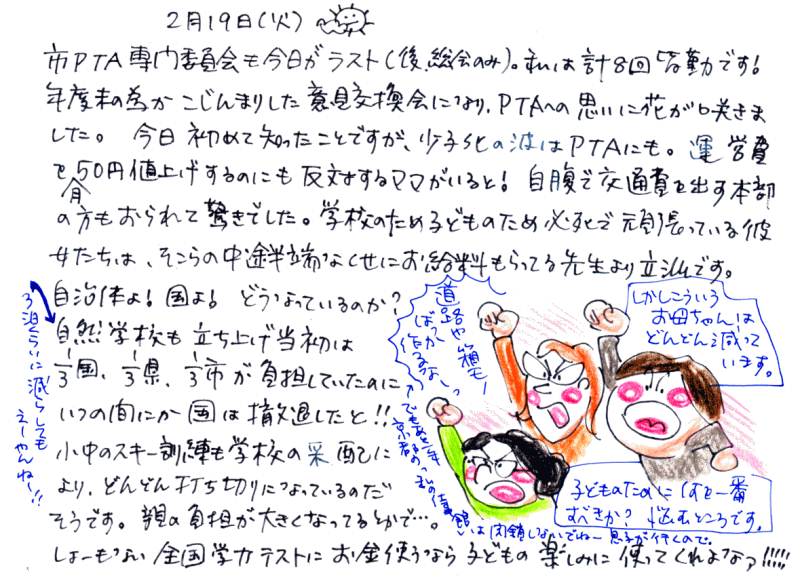 2月19日(火)
市PTA専門委員会も今日がラスト(後、総会のみ)。私は計8回皆勤です!
年度末の為か こじんまりした意見交換会になり、PTAへの思いに花が咲きま
した。 今日初めて知ったことですが、少子化の波はPTAにも。 運営費
を月50円値上げするのにも反対するママがいると! 自腹で交通費を出す本部
の方もおられて驚きでした。学校のため子どものため必死で頑張っている彼
女たちは、そこらの中途半端なくせにお給料もらってる先生より立派です。
自治体よ!国よ! どうなっているのか?
自然学校も立ち上げ当初は
1/3国、1/3県、1/3市が負担していたのに
いつの間にか国は撤退したと!!
小中のスキー訓練も学校の采配に
より、どんどん打ち切りになっているのだ
そうです。親の負担が大きくなってるとかで…。
しょーもない全国学力テストにお金使うなら子どもの楽しみに使ってくれよなァ!!!!!
3泊くらいに減らしても
えーやんねー!!
道路や箱モノ
ばっか
作るなっ
しかしこういう
お母ちゃんは
どんどん減って
います。
子どものために何を一番
すべきか? 悩むところです。
は閉鎖しないでねー 息子が行くので。